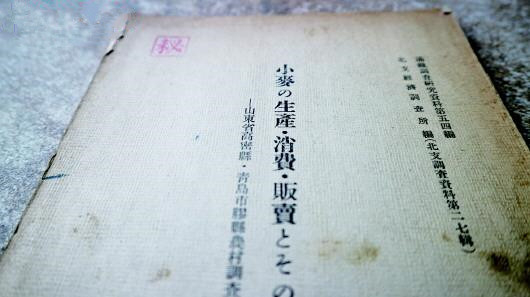 滿鐵調査研究資料第五四編
北支經濟調査所編(北支調査資料第二七輯)
小麥の生產・消費・販賣とその
—山東省高密縣・青島市膠縣農村調査
秘